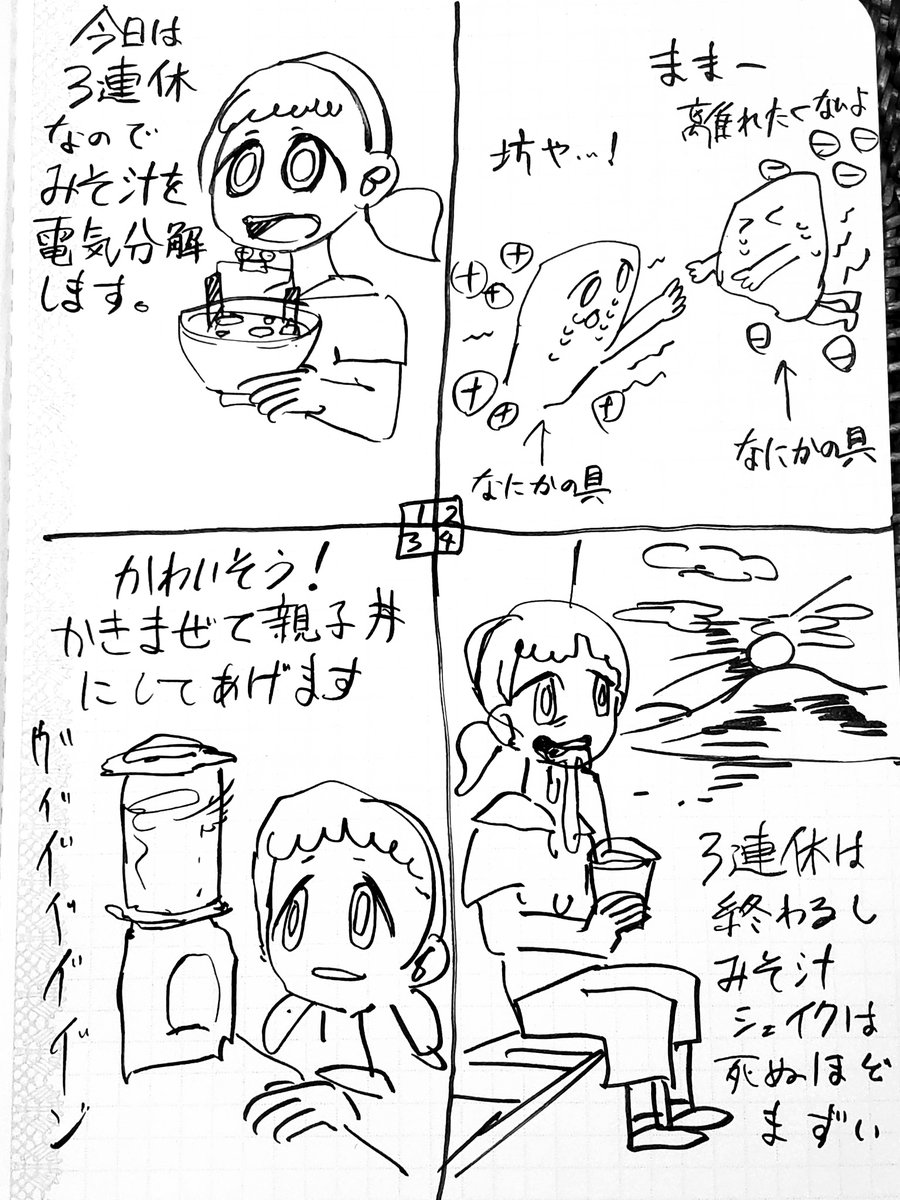 今日は
3連休
なので
みそ汁を
電気分解
します。
ままー
離れたくないよ
坊や…!
なにかの具
なにかの具
1 2
3 4
かわいそう!
かきまぜて親子丼
にしてあげます
ヴィイイイイーン
3連休は
終わるし
みそ汁
シェイクは
死ぬほど
まずい